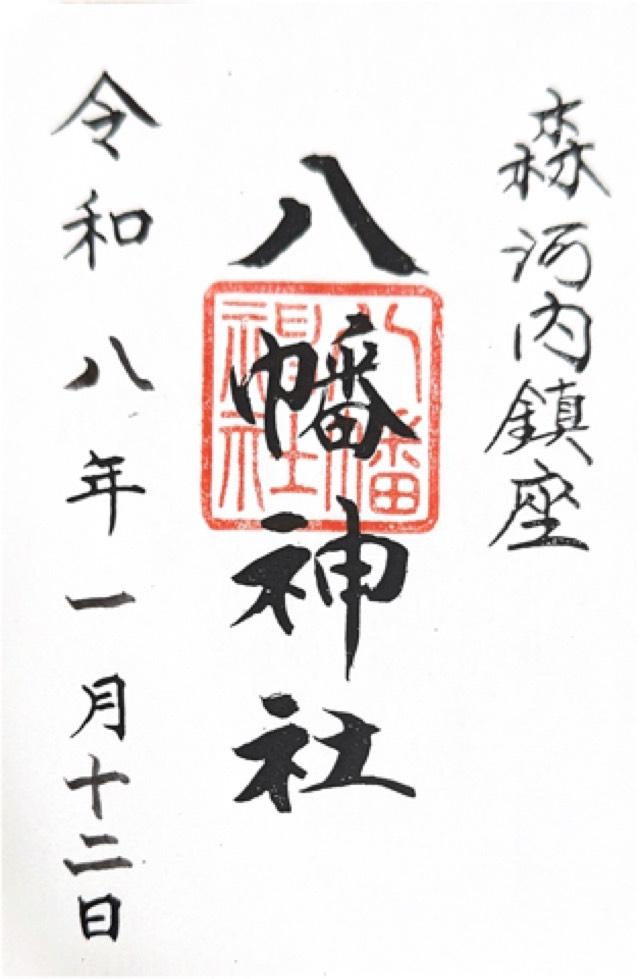 森河内鎮座
八幡神社
八幡
神社
令和八年一月十二日